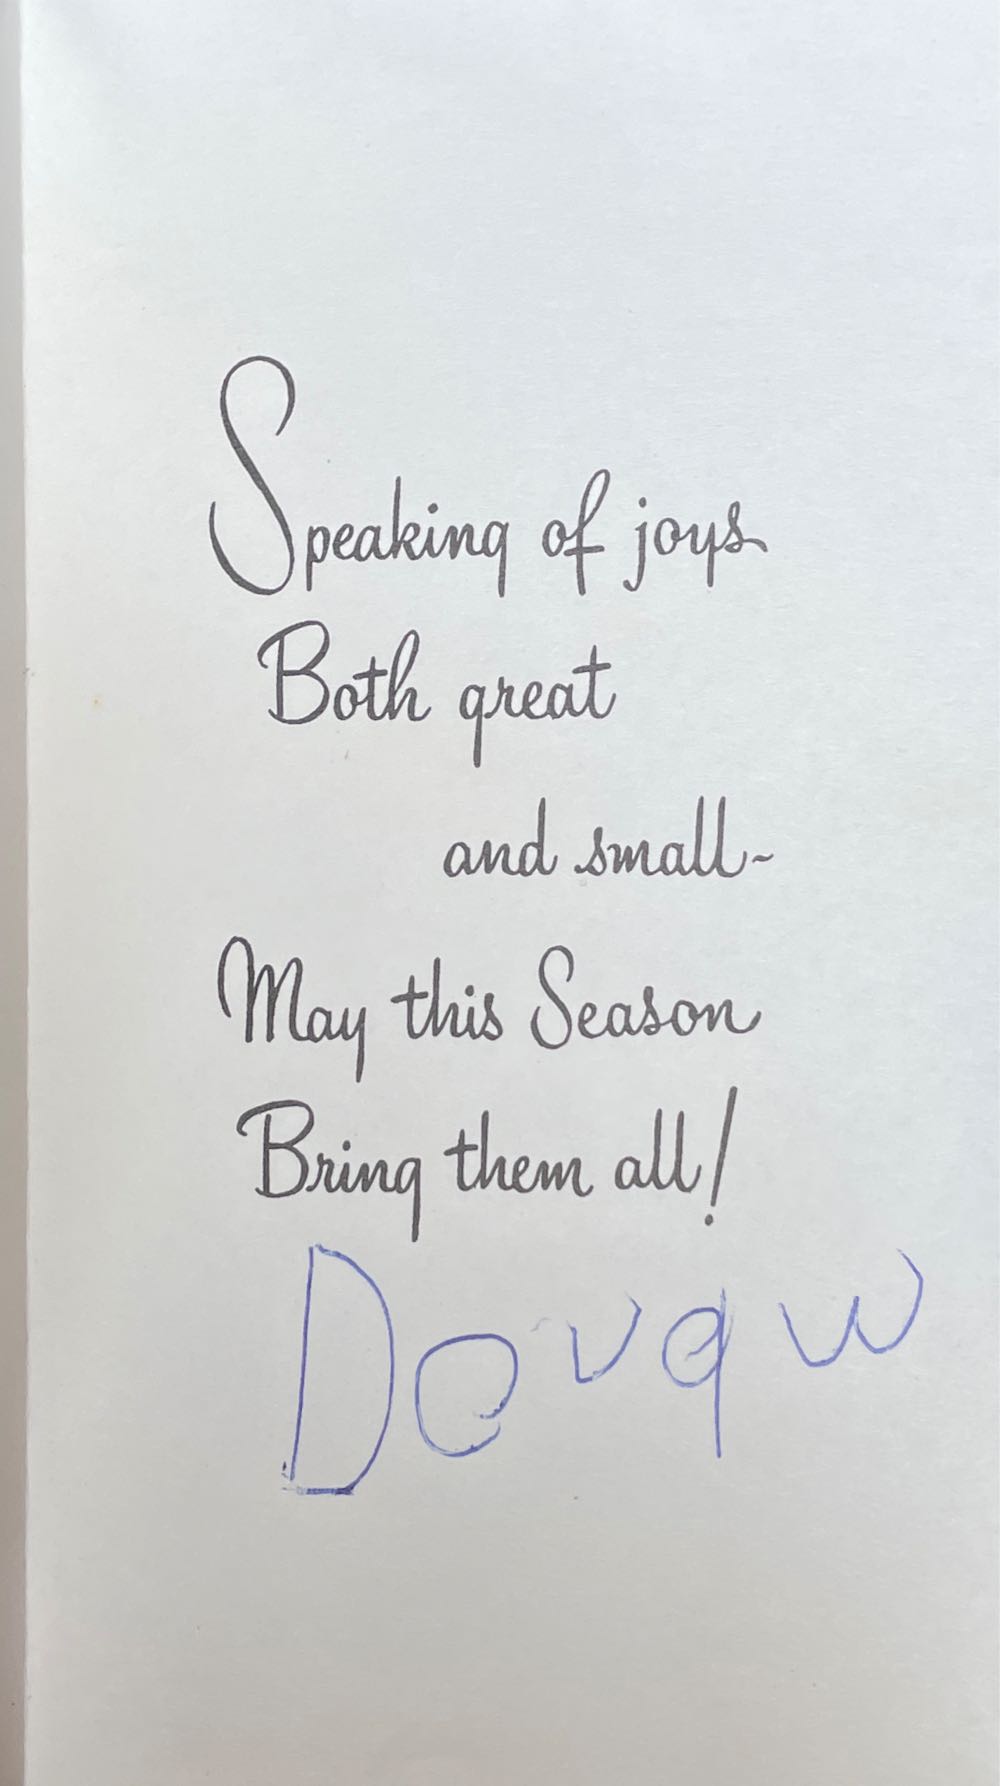 Speaking of joys
Both great
and small~
May this Season
Bring them all!
Doug W